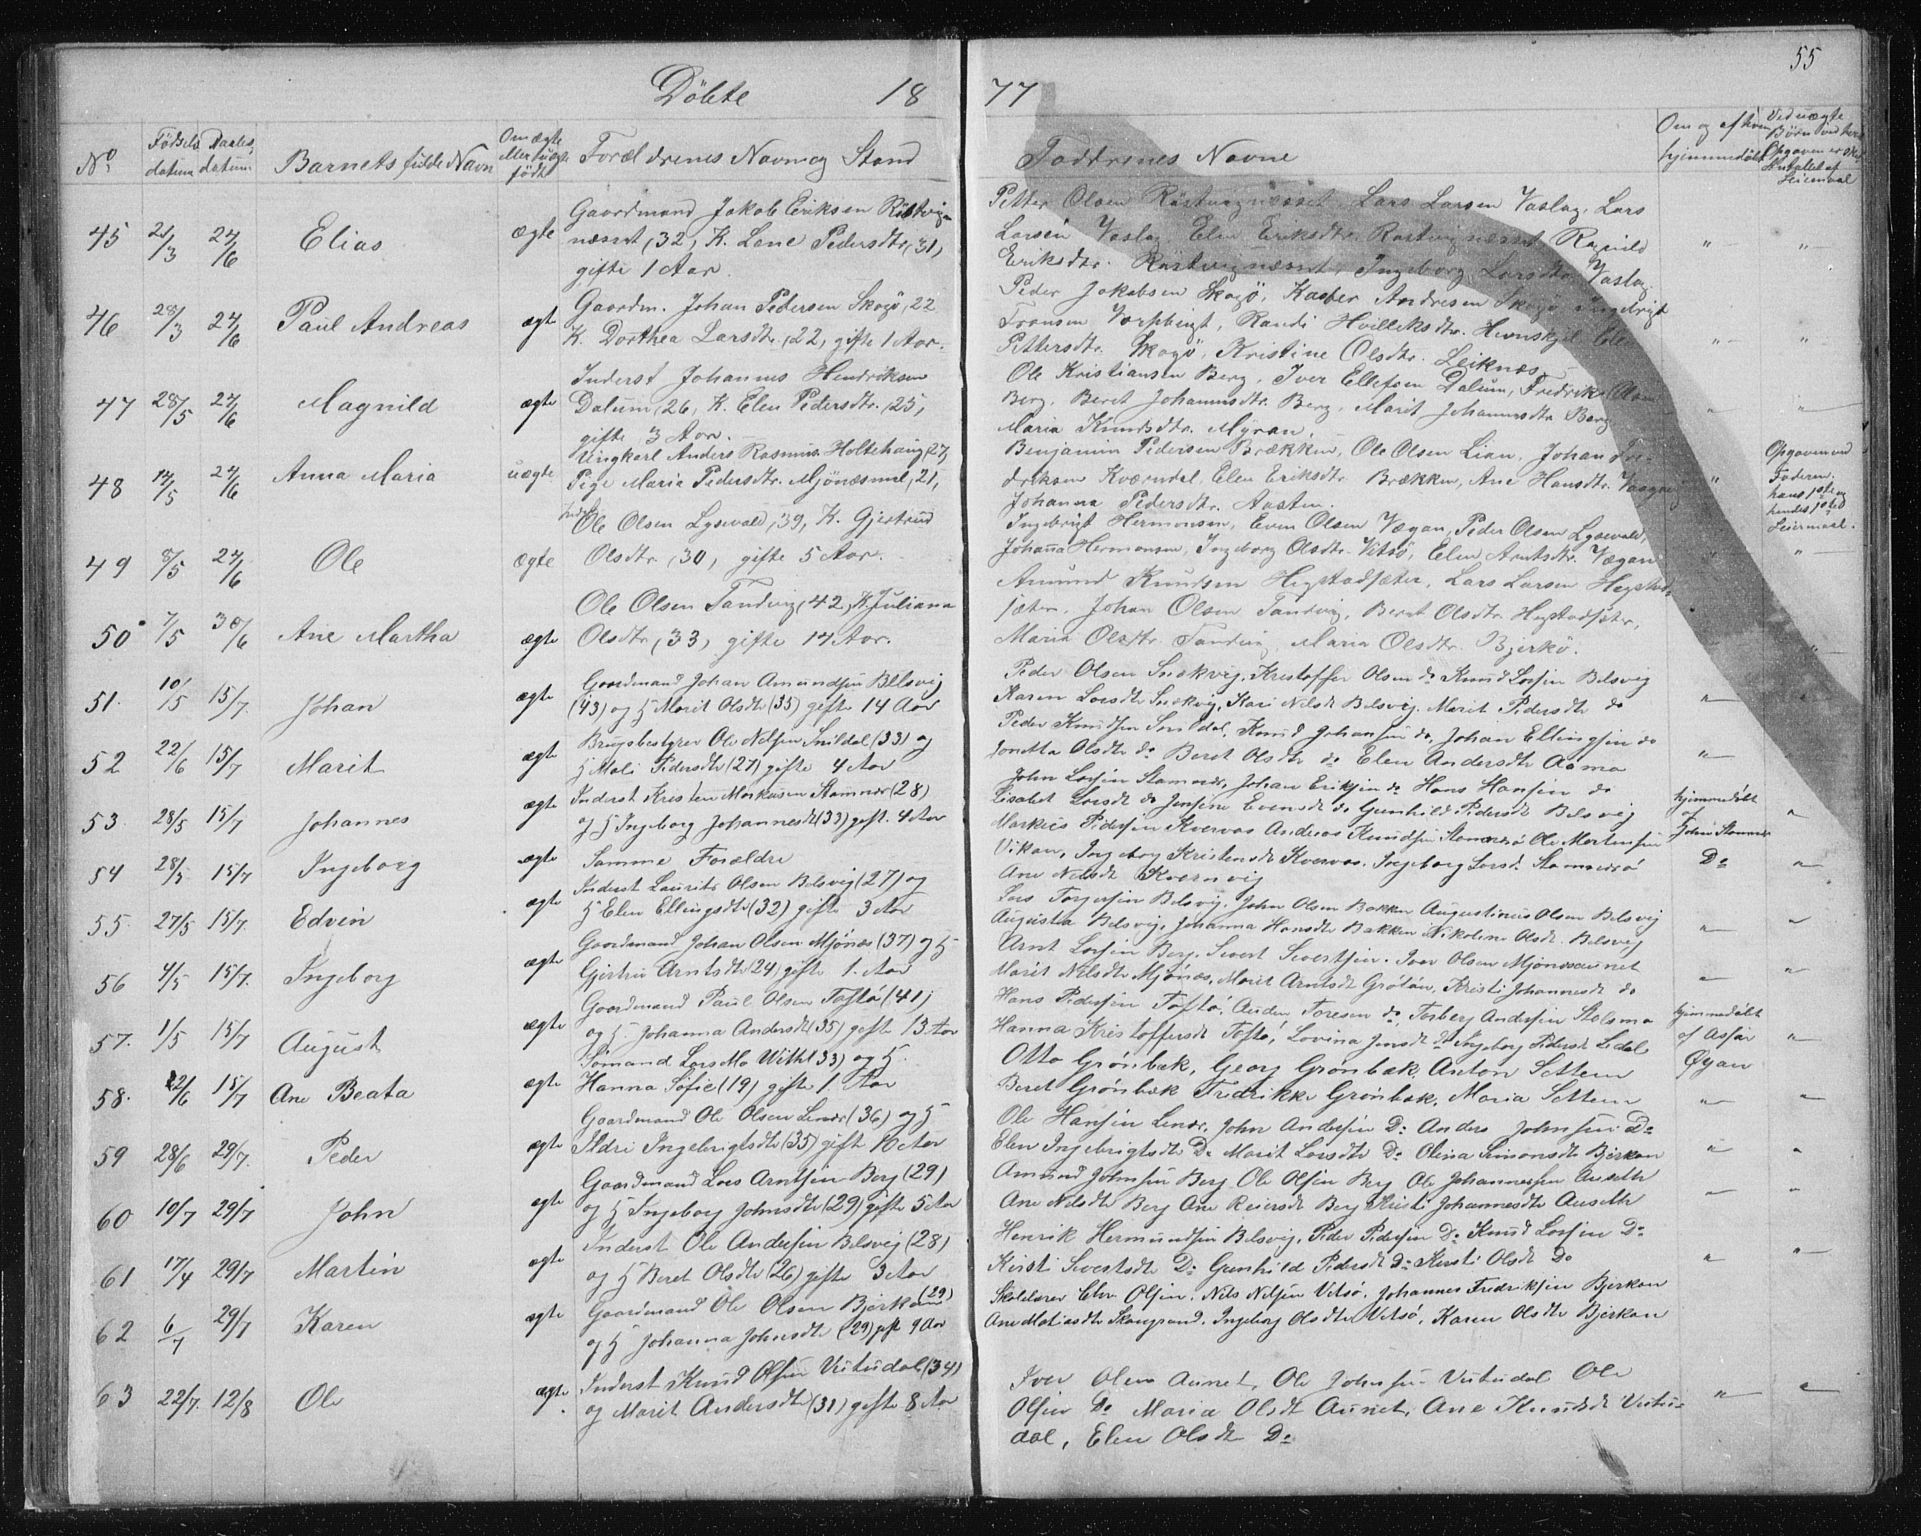 55
Döbte 18 77
No
Fødsels datum
Daabs datum
Barnets fulde Navn
Om ægte eller uægte født
Forældrenes Navn og Stand
Faddrenes Navne
Om og af hvem hjemmedøbt
Ved uægte Børn
45 21/3 24/6 Elias ægte
Gaardmand Jakob Eriksen Röstvig
næsset, 32, K. Lene Pedersdtr, 31,
gifte 1 Aar.
Petter Olsen Röstvignæsset, Lars Larsen Vaslag, Lars
Larsen Vaslag, Elen Eriksdtr. Röstvignæsset Ragnild
Eriksdtr. Röstvignæsset, Ingeborg Larsdtr. Vaslag.
46 28/3 24/6 Paul Andreas ægte
Gaardm. Johan Pedersen Skogö, 22
K. Dorthea Larsdtr, 22, gifte 1 Aar.
Peder Jakobsen Skogö, Kasper Andresen Skogö Ingebrigt
Fransen, Randi
Pettersdtr. Skogö, Kristine Olsdtr. Leiknes
47 28/5 24/6 Magnild ægte
Inderst Johannes Hendriksen
Dalum, 26, K. Elen Pedersdtr. 25,
gifte 3 Aar.
Ole Kristiansen Berg, Iver Ellefsen Dalum, Fredrik Olsen
Berg, Beret Johannesdtr. Berg, Marit Johannesdtr Berg
Maria Knudsdtr. Myran.
48 14/5 24/6 Anna Maria uægte
Ungkarl Anders Rasmus. Holtehaug, 27,
Pige Maria Pedersdtr. Mjönesmel, 21,
Benjamin Pedersen Brækken, Ole Olsen Lian, Johan Fre-
driksen Kværndal, Elen Eriksdtr. Brækken, Ane Hansdtr.
Johanna Pedersdtr. Aasten.
Opgaven ved
Faderen.
hans 1ste og
hendes 1sted
Leiermaal.
49 8/5 24/6 Ole ægte
Inderst
Ole Olsen Lysevald, 39, K. Gjertrud
Olsdtr, 30, gifte 5 Aar.
Ingebrigt Hermonsen, Even Olsen Vægan, Peder Olsen Lysevald,
Johanna Hermonsen, Ingeborg Olsdtr. Vitsö, Elen Arntsdtr. Vægan
50 7/5 30/6 Ane Martha ægte
Ole Olsen Tandvig, 42, K. Juliana
Olsdtr, 33, gifte 14 Aar.
Amund Knudsen Hegstadsæter, Lars Larsen Hegstad-
sæter, Johan Olsen Tandvig, Beret Olsdtr. Hegstadsæter,
Maria Olsdtr. Tandvig, Maria Olsdtr. Bjerkö.
51. 10/5 15/7. Johan ægte
Gaardmand Johan Amundsen Belsvig
(43) og H Marit Olsdtr (35) gifte 14 Aar
Peder Olsen Snekvig, Kristoffer Olsen do Knud Larsen Belsvig
Karen Larsdtr Snekvig, Kari Nilsdt Belsvig. Marit Pedersdtr do
52 22/6 15/7 Marit ægte
Brugsbestyrer Ole Nelsen Snildal (33) og
H Mali Pedersdtr (27) gifte 4 Aar
Peder Knudsen Snildal, Knud Johansen do, Johan Ellingsen do
Jonetta Olsdtr do Beret Olsdtr do Elen Andersdtr Aamo
53. 28/5 15/7 Johannes ægte
Inderst Kristen Markusen Stamnes (28)
og H Ingeborg Johannesdt (33) gift. 4 Aar
John Larsen Stamnes, Johan Eriksen do Hans Hansen do
Lisabet Larsdt do Jensine Evensdt do Gunhild Pedersdt Belsvig
hjemmedöbt
54 28/5 15/7 Ingeborg ægte
Samme Forældre
Markus Pedersen Andreas Knudsen Ole Mortensen
Vikan, Ingeborg Kristensdt Ingeborg Larsdt
Ane Nelsdt Kvernvig
Do
55. 27/5 15/7. Edvin ægte
Inderst Laurits Olsen Belsvig (27) og
H Elen Ellingsdtr (32) gifte 3 Aar
Lars Torgersen Belsvig, John Olsen Bakken Augustinus Olsen Belsvig
Augusta Belsvig, Johanna Hansdtr Bakken Nikoline Olsdt. Belsvig
56 4/5 15/7. Ingeborg ægte
Gaardmand Johan Olsen Mjönes (37) og H
Gjertru Arntsdtr (24) gifte 1. Aar
Arnt Larsen Berg, Sivert Sivertsen. Iver Olsen Mjönesaunet
Marit Nelsdtr Mjönes, Marit Arntsdt Grötan, Kristi Johannesdt do
57. 1/5 15/7 August ægte
Gaardmand Paul Olsen Toftö (41)
og H Johanna Andersdt (35) gifte 13 Aar
Hans Pedersen Toftö, Auden Toresen do, Torberg Andersen Stolsmo
Hanna Kristoffersdt Toftö, Lovina Jensdt do Ingeborg Pedersdt
hjemmedöbt
af
Øyan
58. 2/6 15/7 Ane Beata ægte
Sömand Lars Mo (33) og H.
Hanna Sofie (19) gifte 1 Aar
Otto Grönbæk, Georg Grönbæk, Anton Settem
Beret Grönbæk Fredrikke Grönbæk, Maria Settem
59 28/6 29/7. Peder ægte
Gaardmand Ole Olsen Lenes (36) og H
Ildri Ingebrigtsdtr (35) gifte 10 Aar
Ole Hansen Lenes, John Andersen Do Anders Johnsen Do
Elen Ingebrigtsdt Do Marit Larsdtr Do Olina Simonsdt Bjerkan
60 10/7 29/7 John ægte
Gaardmand Lars Arntsen Berg (29)
og H Ingeborg Johnsdtr (29) gifte 5 Aar
Amund Johnsen Berg Ole Olsen Berg Ole Johannessen Auseth
Ane Nilsdtr Berg Ane Reiersdt Berg Kristi Johannesdtr Auseth
61 17/4 29/7 Martin ægte
Inderst Ole Andersen Belsvig (28)
og H Beret Olsdtr (26) gifte 3 Aar
Henrik Hermundsen Belsvig, Peder Pedersen Do Knud Larsen Do
Kristi Sivertsdt Do Gunhild Pedersdt Do Kersti Olsdt Do
62 6/7 29/7 Karen ægte
Gaardmand Ole Olsen Bjerkan (29)
og H Johanna Johnsdtr (29) gift 9 Aar
Skolelærer Chr. Olsen. Nils Nelsen Vitsö, Johannes Fredriksen Bjerkan
Ane Matiasdtr Ingeborg Olsdtr Vitsö, Karen Olsdtr Bjerkan
63 22/7. 12/8 Ole ægte.
Inderst Knud Olsen Vutudal (34)
og Marit Andersdtr (31) gifte 8 Aar
Iver Olsen Aunet, Ole Johnsen Vutudal Ole
Olsen Do Maria Olsdt Aunet, Ane Knudsdt Vutu-
dal, Elen Olsdtr Do